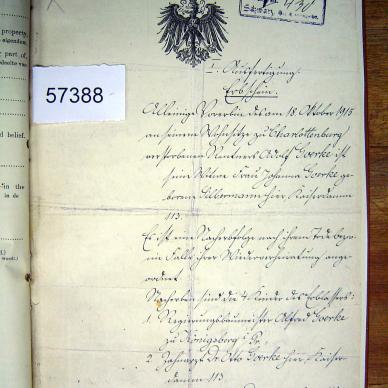 property,
part of,
57388
d belief.
in the
in de
I. Ausfertigung.
Erbschein.
Alleinige Vorerbin des am 18. Oktober 1915
an seinem Wohnsitze zu Charlottenburg
verstorbenen Rentners Adolf Goerke ist
seine Witwe Frau Johanna Goerke ge-
borene Silbermann hier Kaiserdamm
113.
Es ist eine Nacherbfolge nach ihrem Tode bezw.
im Falle ihrer Wiederverheiratung ange-
ordnet
Nacherben sind die 4 Kinder des Erblassers:
1. Regierungsbaumeister Alfred Goerke
zu Königsberg i/Pr.
2. Zahnarzt Dr Otto Goerke hier, Kaiser-
damm 113